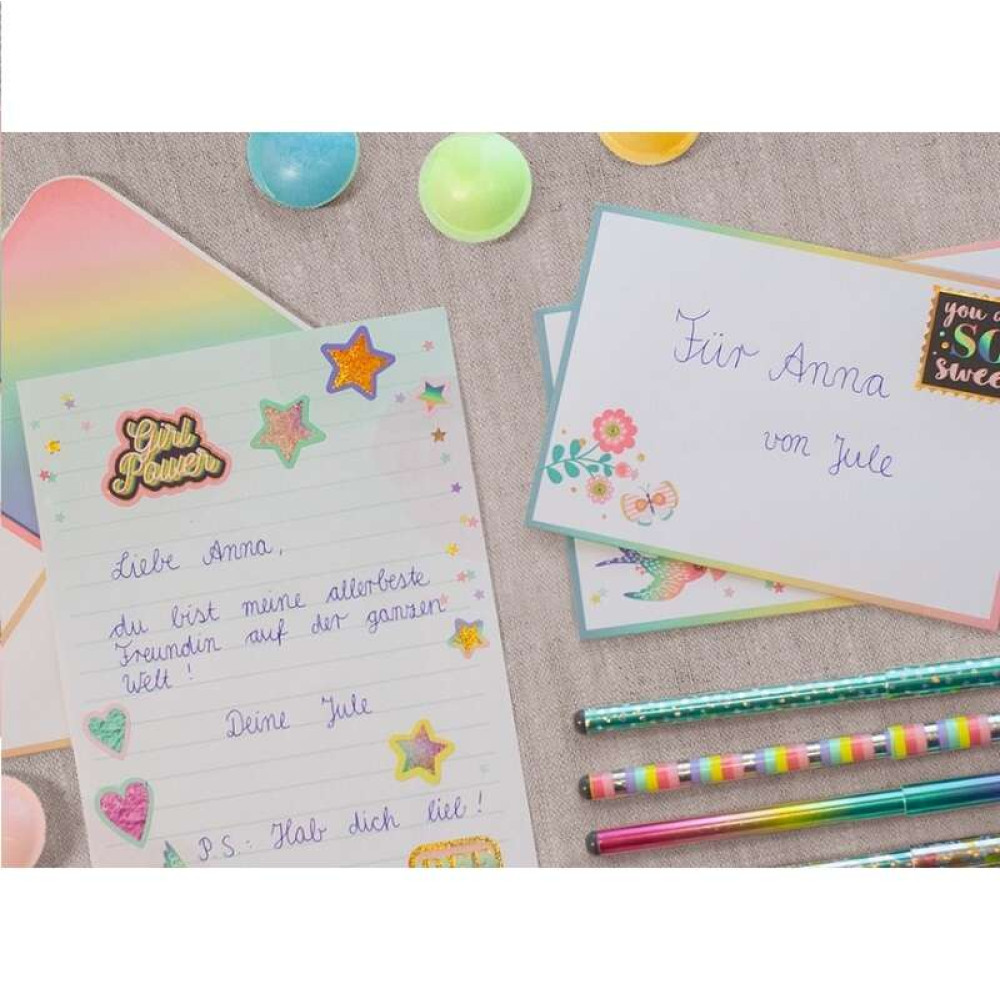 Girl
Power
Liebe Anna,
du bist meine allerbeste
Freundin auf der ganzen
Welt!
Deine Jule
P.S.: Hab dich lieb!
Für Anna
von Jule
you
SO
swee